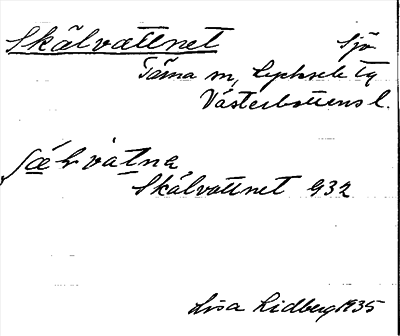 Skälvattnet Sjö
Tärna sn, Lycksele tg
Västerbottens l.
Skälvattnet 932
Lisa Lidberg 1935